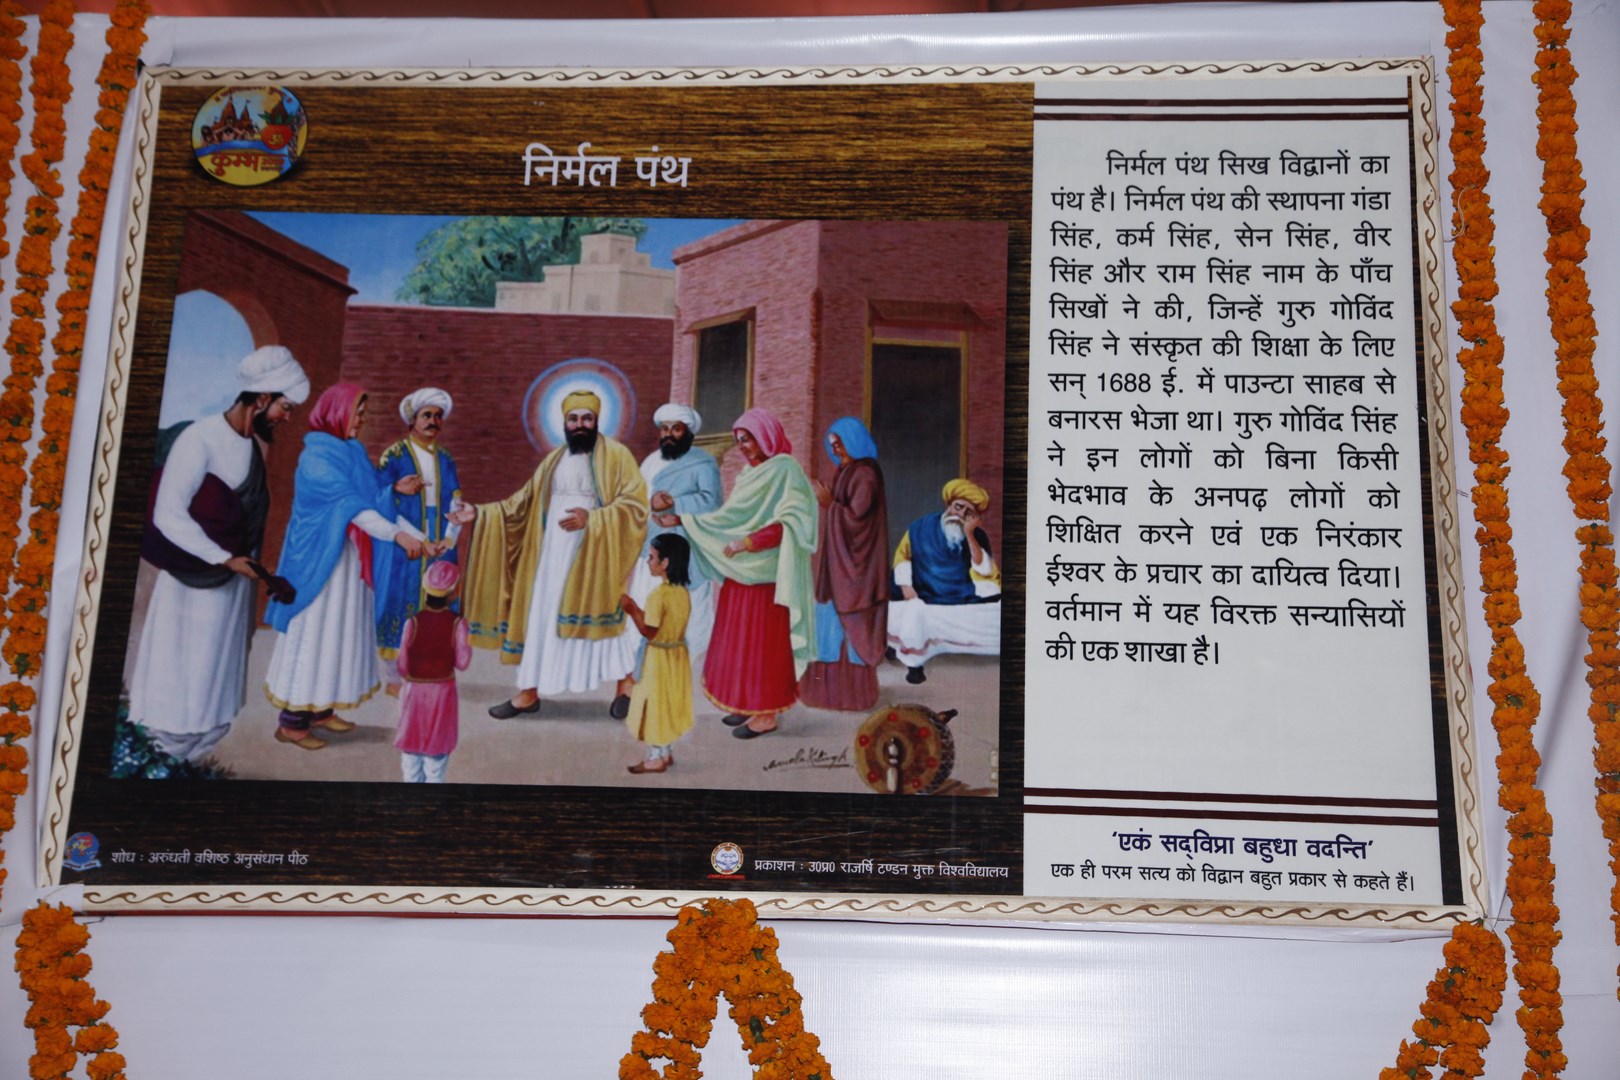 कुम्भ
निर्मल पंथ
निर्मल पंथ सिख विद्वानों का
पंथ है। निर्मल पंथ की स्थापना गंडा
सिंह, कर्म सिंह, सेन सिंह, वीर
सिंह और राम सिंह नाम के पाँच
सिखों ने की, जिन्हें गुरु गोविंद
सिंह ने संस्कृत की शिक्षा के लिए
सन् 1688 ई. में पाउन्टा साहब से
बनारस भेजा था। गुरु गोविंद सिंह
ने इन लोगों को बिना किसी
भेदभाव के अनपढ़ लोगों को
शिक्षित करने एवं एक निरंकार
ईश्वर के प्रचार का दायित्व दिया।
वर्तमान में यह विरक्त सन्यासियों
की एक शाखा है।
शोध : अरुंधती वशिष्ठ अनुसंधान पीठ
प्रकाशन : उ0प्र0 राजर्षि टण्डन मुक्त विश्वविद्यालय
‘एकं सद्विप्रा बहुधा वदन्ति’
एक ही परम सत्य को विद्वान बहुत प्रकार से कहते हैं।